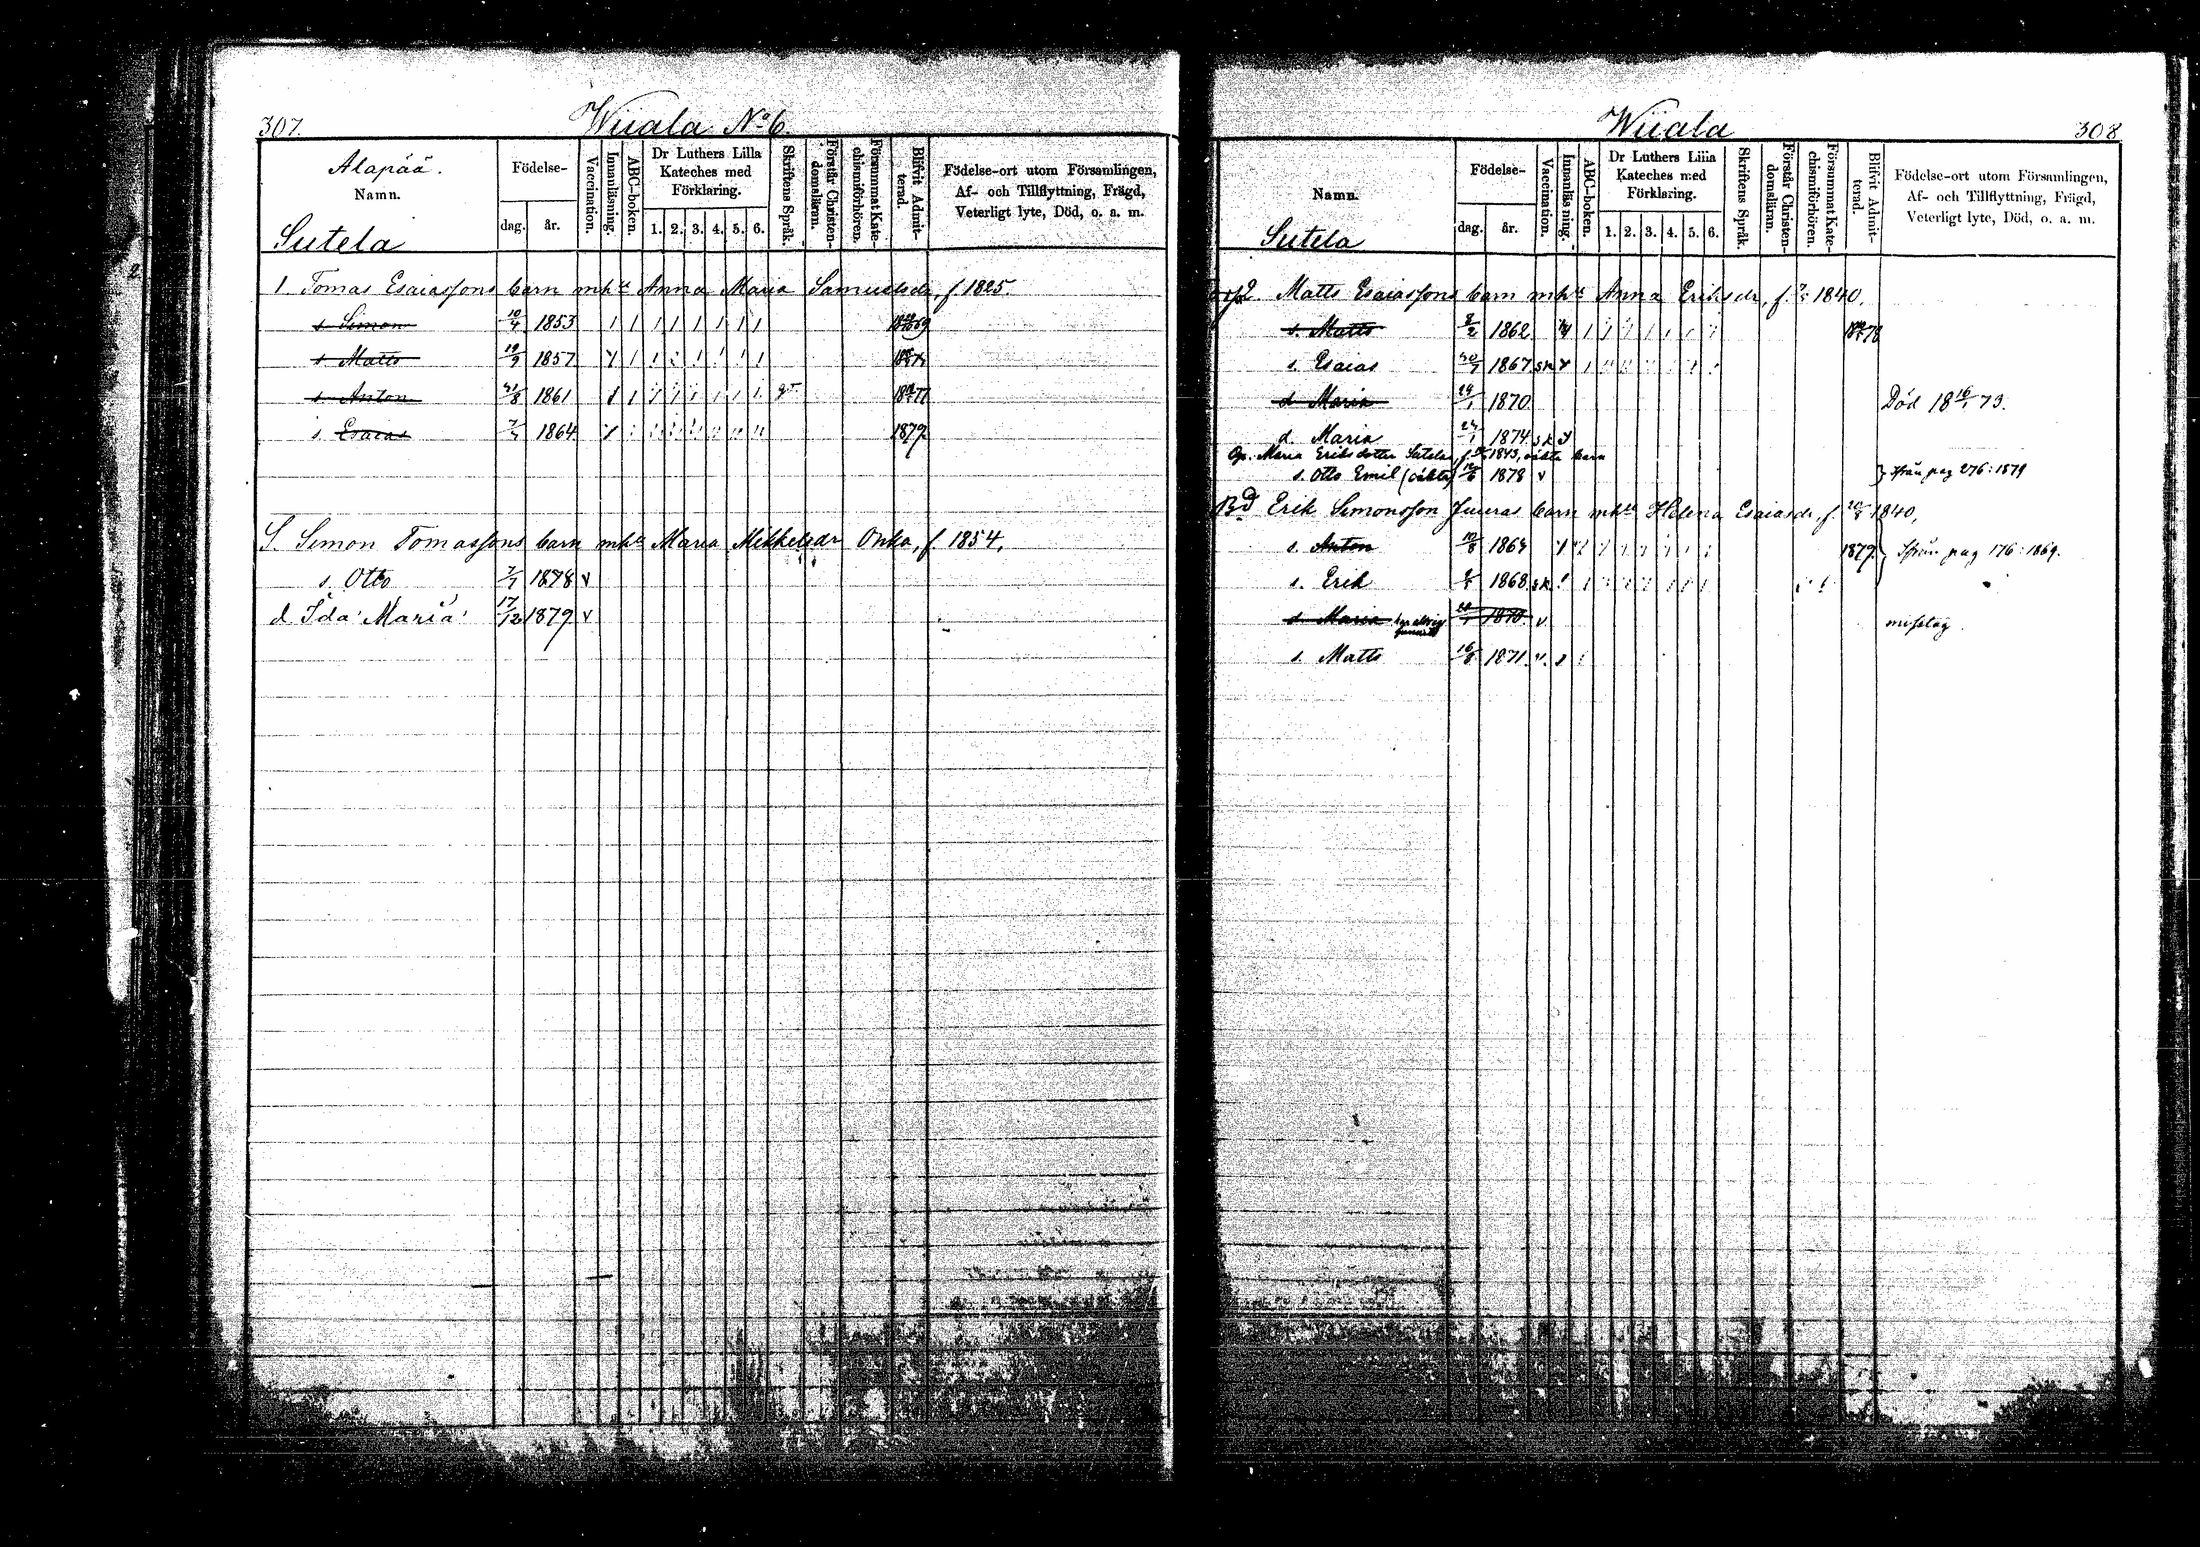 307. Wiiala No 6.
Alapää.
Namn.
Sutela
Födelse-
dag. år.
Vaccination.
Innanläsning.
ABC-boken.
Dr Luthers Lilla Kateches med Förklaring.
1. 2. 3. 4. 5. 6.
Skriftens Språk.
Förstår Christen-domsläran.
Försummat Kate-chismiförhören.
Blifvit Admit-terad.
Födelse-ort utom Församlingen, Af- och Tillflyttning, Frägd, Veterligt lyte, Död, o. a. m.
1 Tomas Esaiassons barn mh Anna Maria Samuelsdr, f 1825.
s Simon 10/4 1853
s Matts 19/9 1857
s Anton 31/8 1861
s. Esaias 1864 1879
S. Simon Tomassons barn mh Maria Mikkelsdr Onka, f 1854.
s. Otto 1878 v
d Ida Maria 17/12 1879 v
Wiiala 308
Namn.
Sutela
Födelse-
dag. år.
Vaccination.
Innanläsning.
ABC-boken.
Dr Luthers Liiia Kateches med Förklaring.
1. 2. 3. 4. 5. 6.
Skriftens Språk
Förstår Christen-domsläran.
Försummat Kate-chismiförhören.
Blifvit Admit-terad.
Födelse-ort utom Församlingen, Af- och Tillflyttning, Frägd, Veterligt lyte, Död, o. a. m.
2. Matts Esaiassons barn mh Anna Eriksdr, f. 1840.
s. Matts 8/2 1862
s. Esaias 1867 sk
d Maria 1870 Död 18 16/1 73.
d. Maria 1874 sk
Maria Eriksdotter Sutela, f. 1843, oäkta barn
s. Otto Emil (oäkta) 1878 v Ifrån pag 276: 1879
Erik Simonsson barn mh Helena Esaiasdr, f. 1840,
s. Anton 10/8 1864 1879 Ifrån pag 176: 1869.
s. Erik 1868 sk
d. Maria 1870 v misstag
s. Matts 16/8 1871